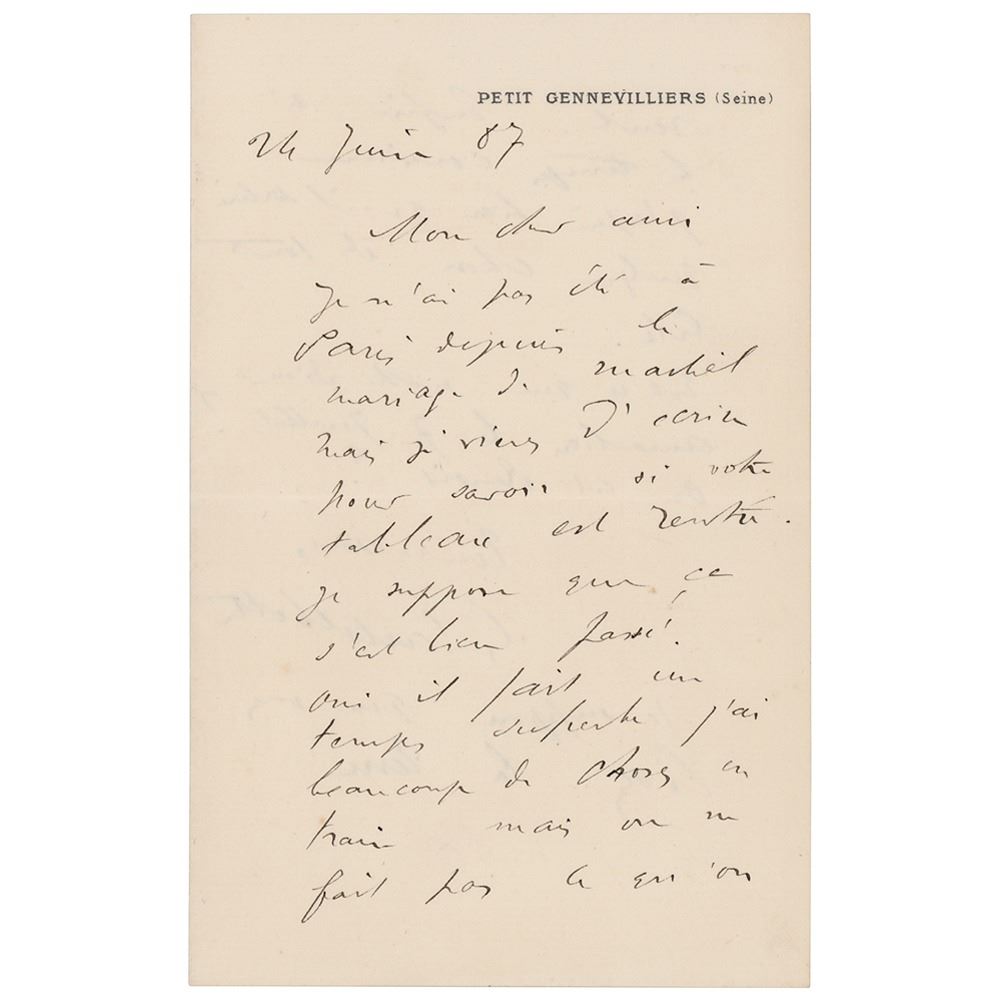 PETIT GENNEVILLIERS (Seine)
24 Juin 87
Mon cher ami
Je n'ai pas été à
Paris depuis le
mariage de Martial
mais je viens d'ecrire
pour savoir si votre
tableau est rentré.
je suppose que ça
s'est bien passé.
oui il fait un
temps superbe j'ai
beaucoup de choses en
train mais on ne
fait pas ce qu'on